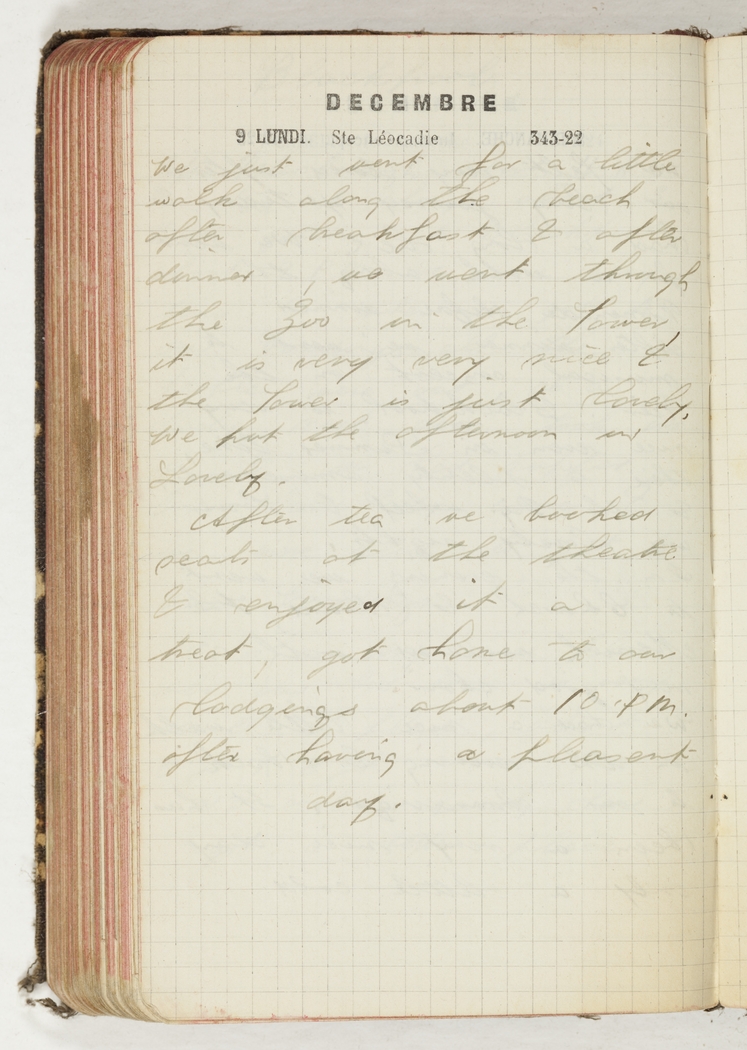 DECEMBRE
9 LUNDI. Ste Léocadie 343-22
We just went for a little
walk along the beach
after breakfast & after
dinner, we went through
the Zoo in the Tower,
it is very very nice &
the Tower is just lovely,
We put the afternoon in
Lovely.
After tea we booked
seats at the theatre
& enjoyed it a
treat, got home to our
lodgings about 10 P.M.
after having a pleasent
day.